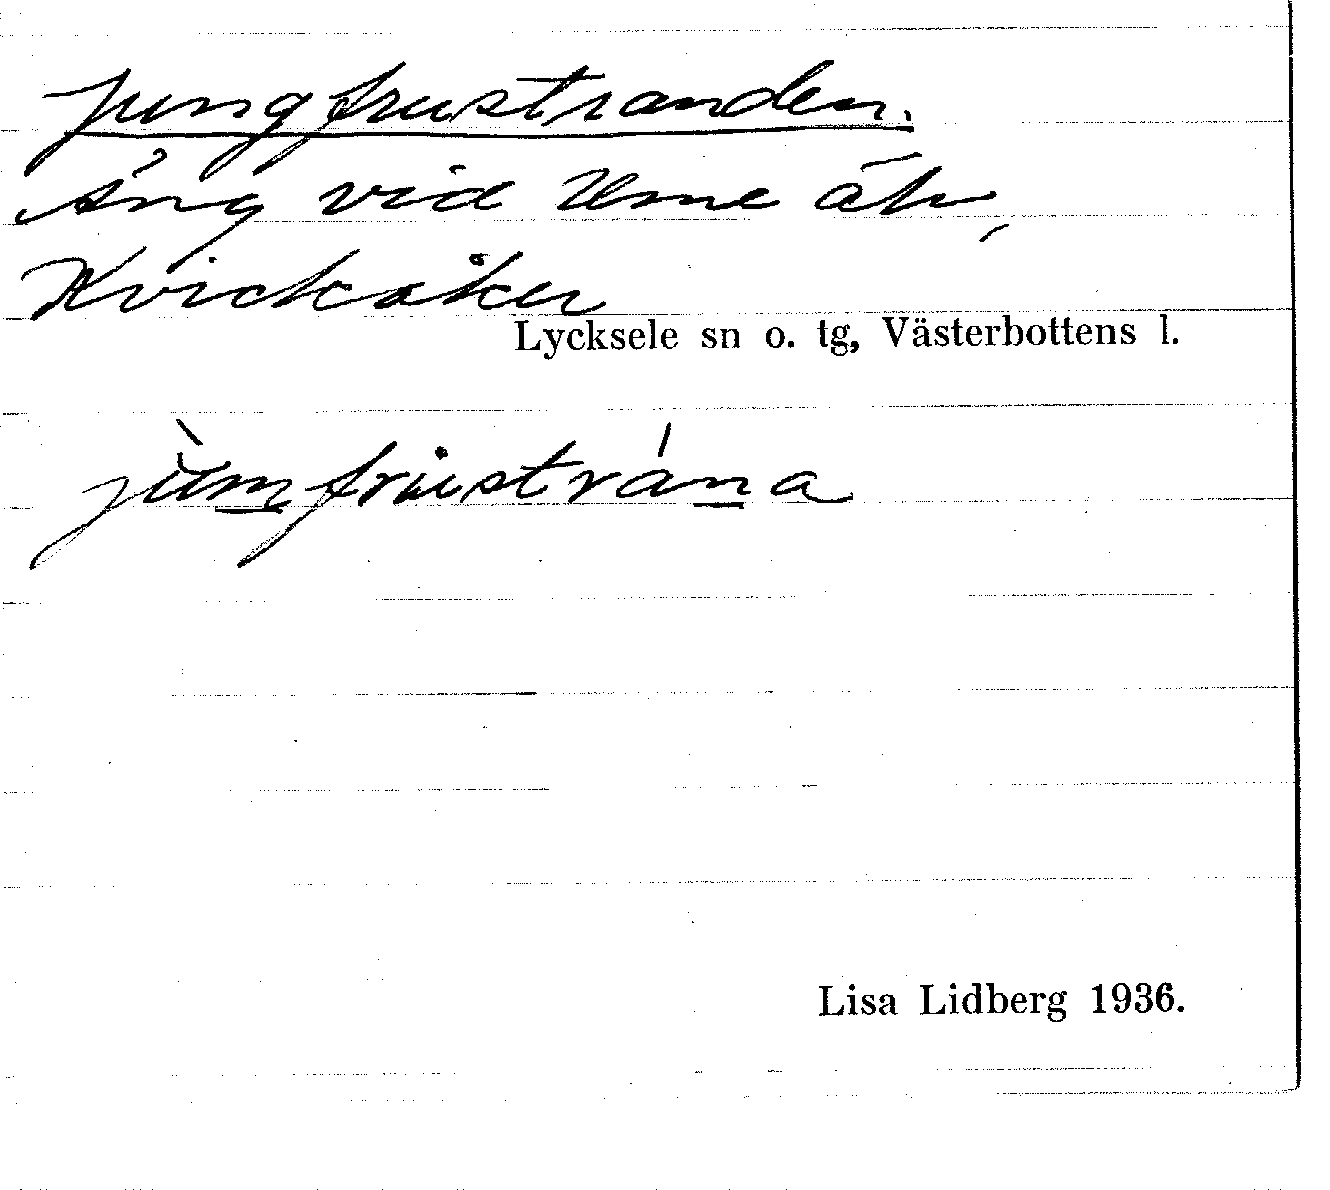 Jungfrustranden.
Äng vid Ume älv,
Kvickåker
Lycksele sn o. tg, Västerbottens l.
jùmfrustrána
Lisa Lidberg 1936.